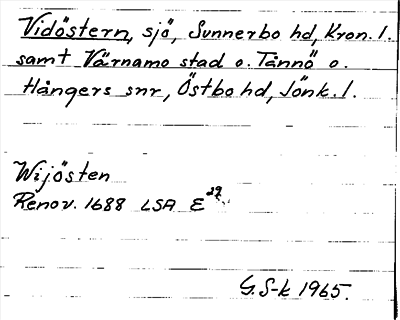 Vidöstern, sjö, Sunnerbo hd, Kron. l.
samt Värnamo stad o. Tånnö o.
Hångers snr, Östbo hd, Jönk. l.
Wijösten
Renov. 1688 LSA E²⁷
G. S-k 1965.